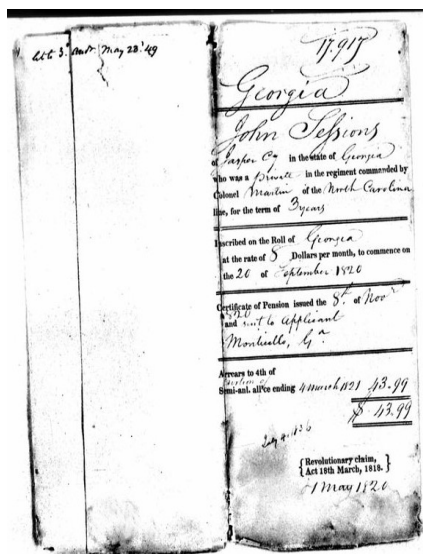 Atto 3d. Audr. May 28. 49
17.917
Georgia
John Sessions
of Jasper Cy in the state of Georgia
who was a private in the regiment commanded by
Colonel Martin of the North Carolina
line, for the term of 3 years
Inscribed on the Roll of Georgia
at the rate of 8 Dollars per month, to commence on
the 20 of September 1820
Certificate of Pension issued the 8th. of Novr
1820
and sent to applicant
Monticello, Ga.
Arrears to 4th of
Semi-ant. all'ce ending 4 March 1821 43.99
$ 43.99
July 4. 1836
{ Revolutionary claim,
Act 18th March, 1818. }
1 May 1820